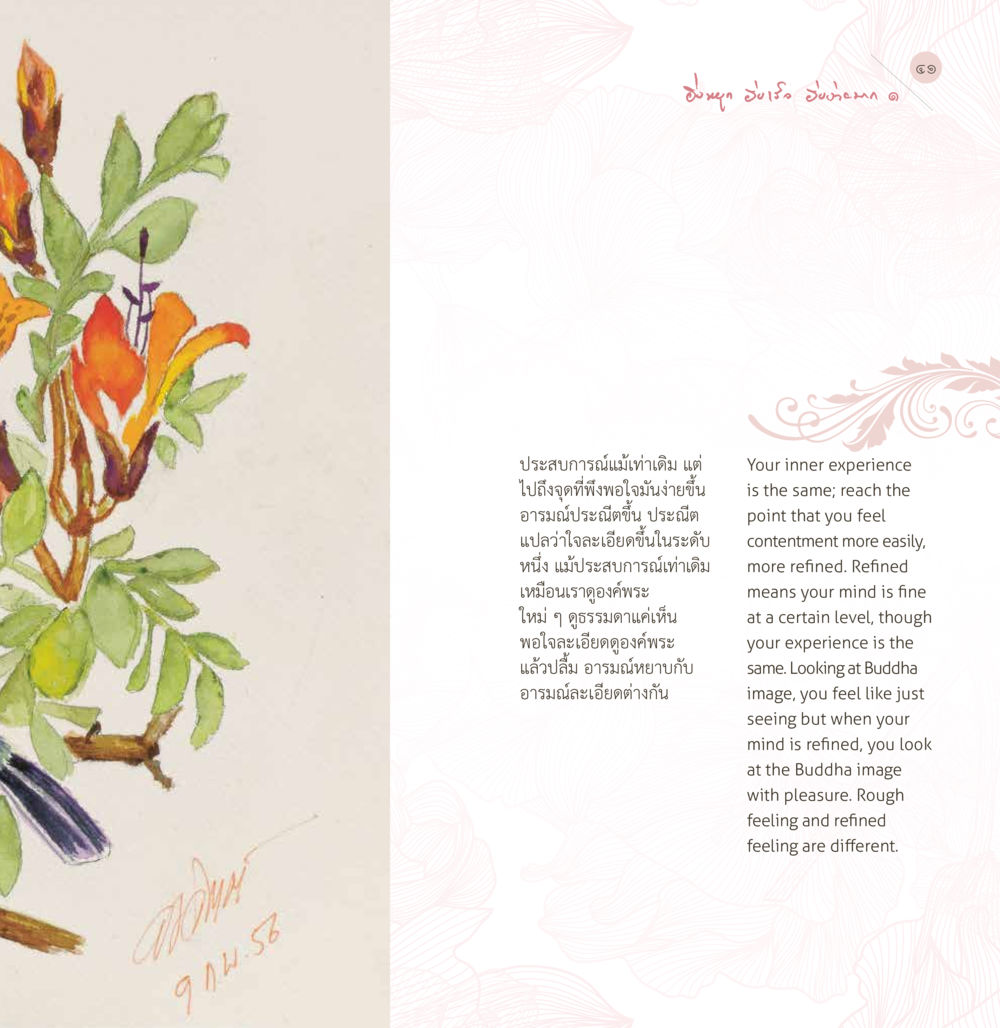 ๔๑
ยิ่งหยุด ยิ่งเร็ว ยิ่งง่ายมาก ๑
ประสบการณ์แม้เท่าเดิม แต่
ไปถึงจุดที่พึงพอใจมันง่ายขึ้น
อารมณ์ประณีตขึ้น ประณีต
แปลว่าใจละเอียดขึ้นในระดับ
หนึ่ง แม้ประสบการณ์เท่าเดิม
เหมือนเราดูองค์พระ
ใหม่ ๆ ดูธรรมดาแค่เห็น
พอใจละเอียดดูองค์พระ
แล้วปลื้ม อารมณ์หยาบกับ
อารมณ์ละเอียดต่างกัน
Your inner experience
is the same; reach the
point that you feel
contentment more easily,
more refined. Refined
means your mind is fine
at a certain level, though
your experience is the
same. Looking at Buddha
image, you feel like just
seeing but when your
mind is refined, you look
at the Buddha image
with pleasure. Rough
feeling and refined
feeling are different.
9 ก.พ. 56